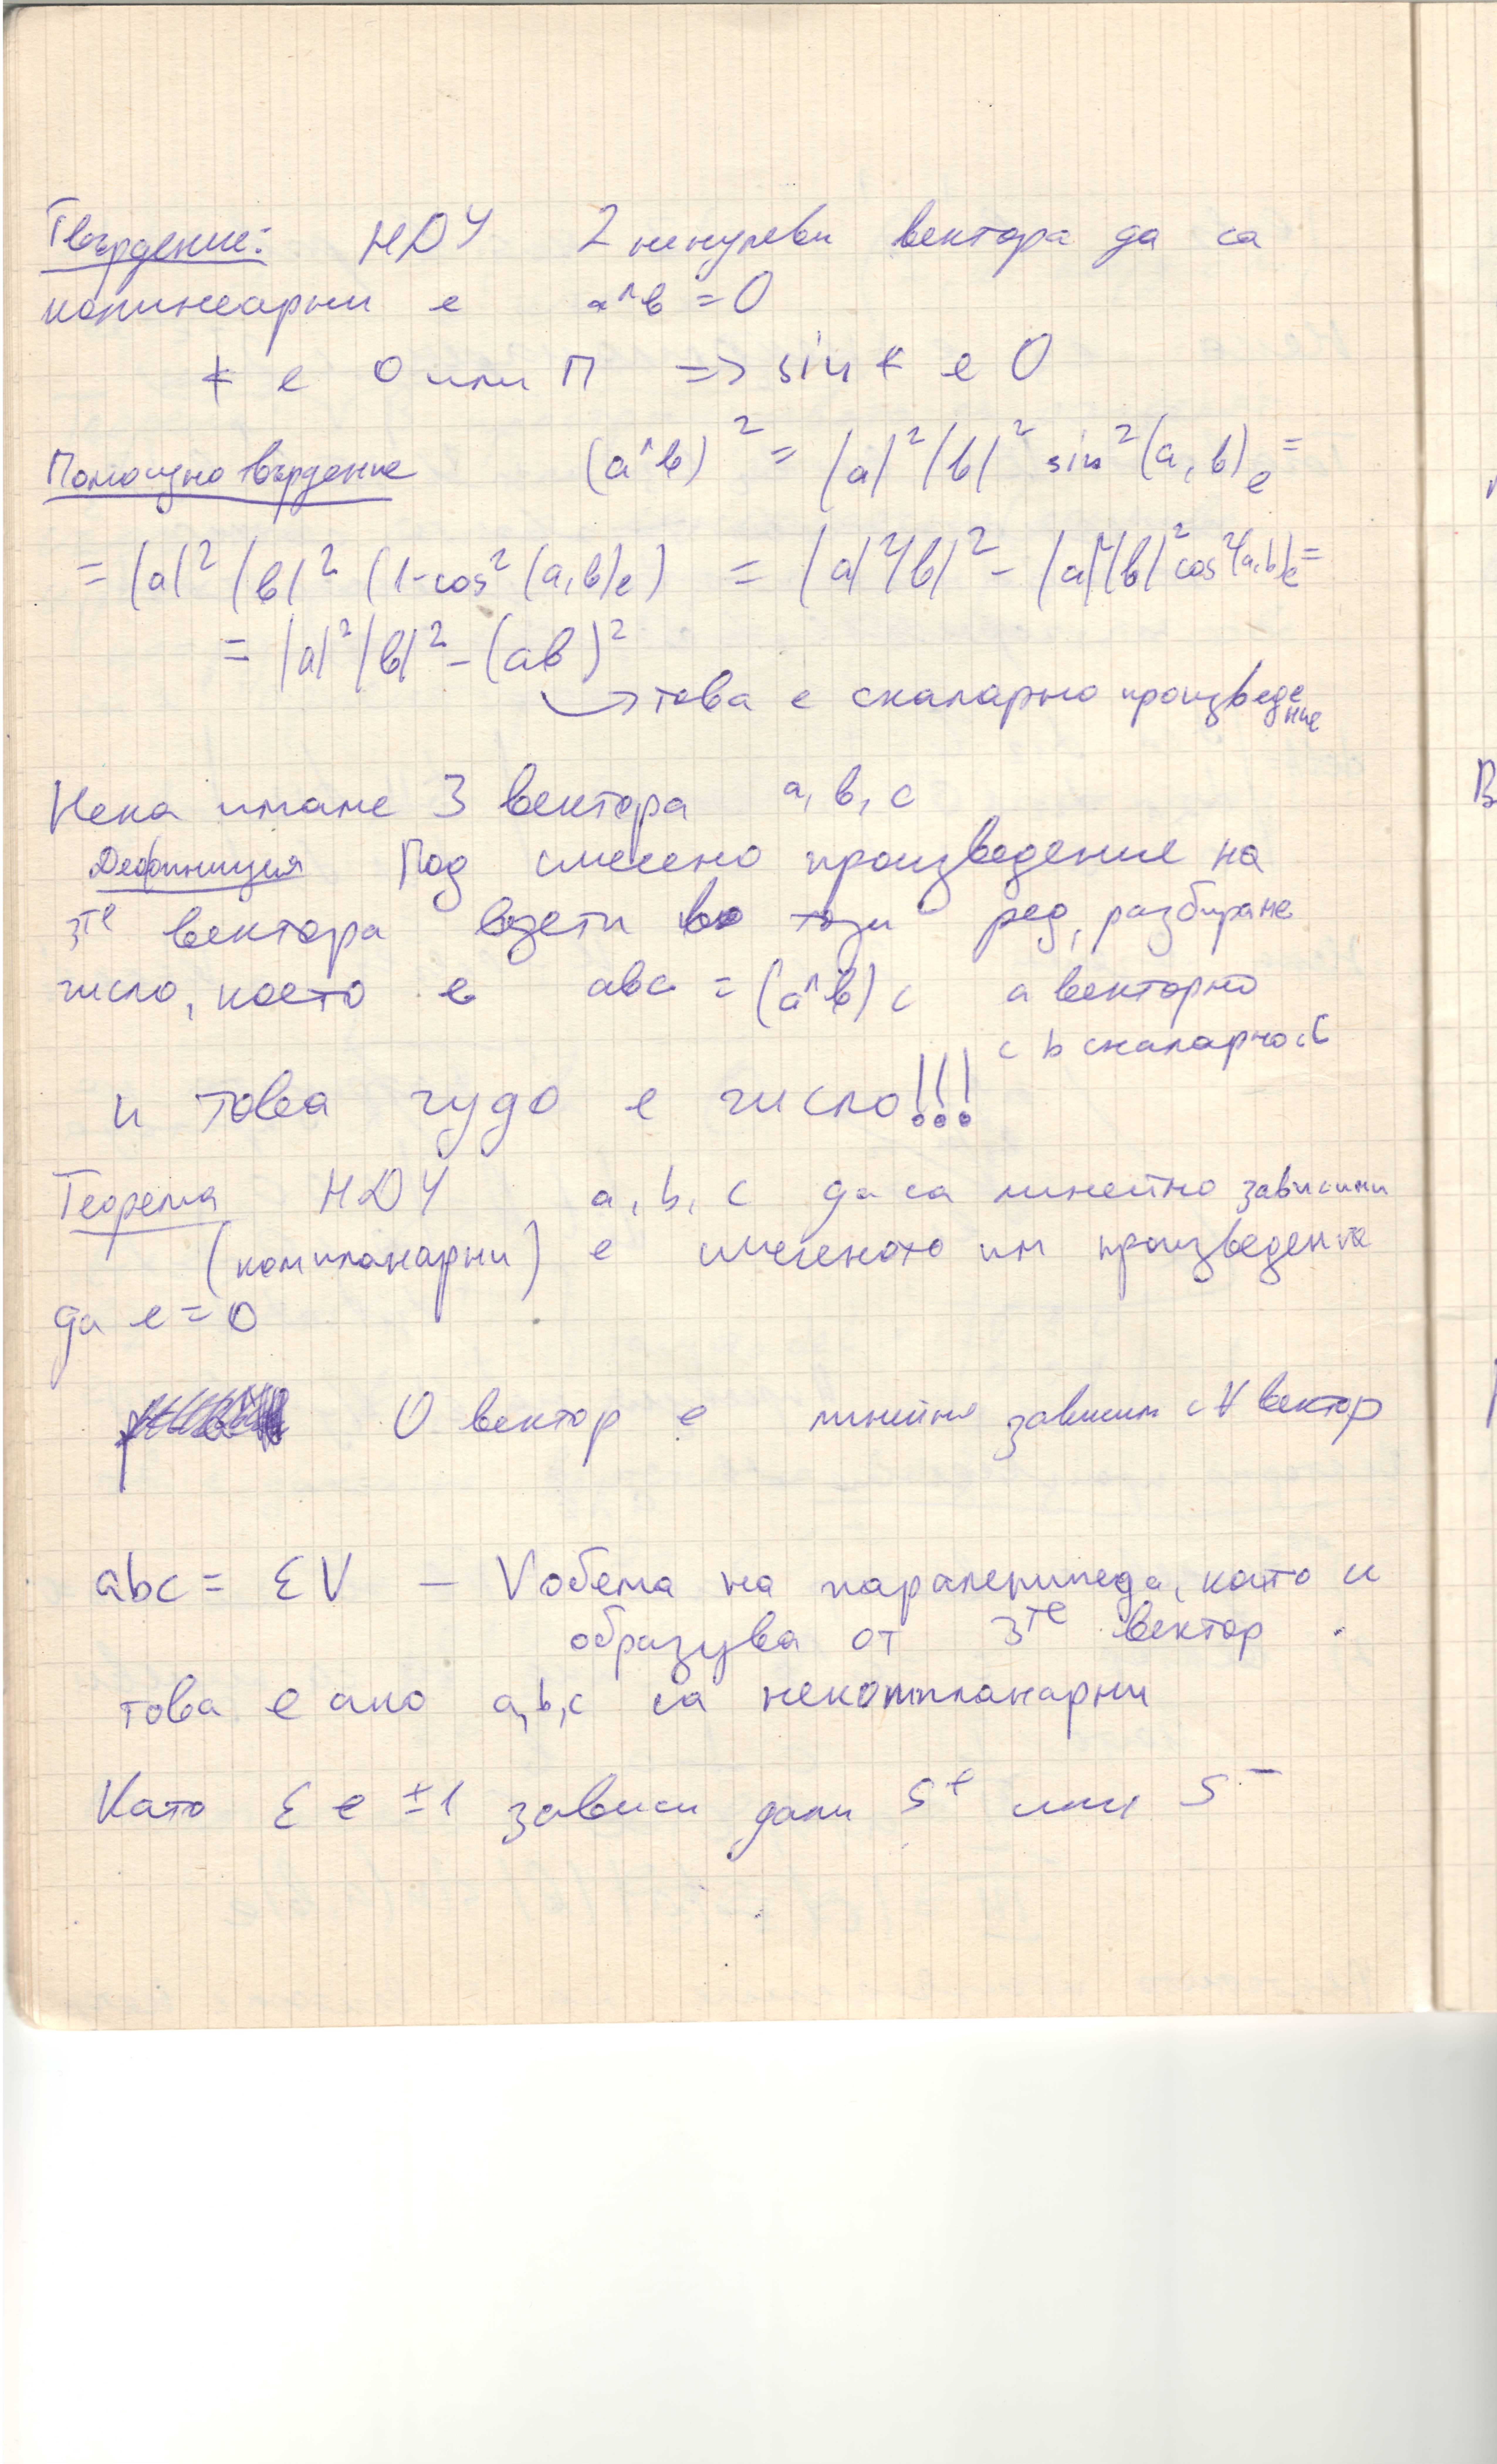 Твърдение: НДУ 2 ненулеви вектора да са
колинеарни е a^b = 0
∢ е 0 или П => sin ∢ е 0
Помощно твърдение (a^b)² = |a|²|b|² sin²(a,b)e =
= |a|²|b|² (1-cos²(a,b)e) = |a|²|b|² - |a|²|b|² cos²(a,b)e =
= |a|²|b|² - (ab)²
→ това е скаларно произведение
Нека имаме 3 вектора a, b, c
Дефиниция Под смесено произведение на
3те вектора взети в този ред, разбираме
число, което е abc = (a^b)c a векторно
с b скаларно с C
и това чудо е число!!!
Теорема НДУ a, b, c да са линейно зависими
(компланарни) е смесеното им произведение
да е = 0
0 вектор е линейно зависим с ∀ вектор
abc = εV – V обема на паралепипеда, който и
образува от 3те вектор
това е ако a,b,c са некомпланарни
Като ε е ±1 зависи дали S⁺ или S⁻
В